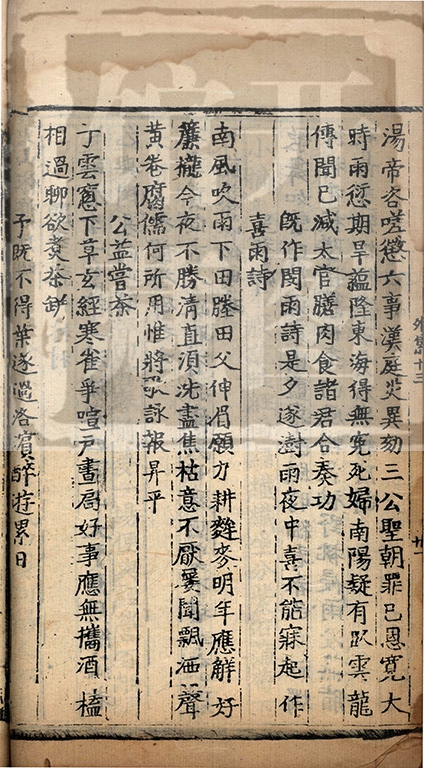 湯帝咨嗟懲六事漢庭災異劾三公聖朝罪已恩寬大
時雨愆期旱蘊隆東海得無冤死婦南陽疑有臥雲龍
傳聞已減太官膳肉食諸君合奏功
喜雨詩
既作閔雨詩是夕遂澍雨夜中喜不能寐起作
南風吹雨下田塍田父伸眉願力耕麰麥明年應解好
簾櫳今夜不勝清直須洗盡焦枯意不厭屢聞飄洒聲
黃卷腐儒何所用惟將歌詠報昇平
公益嘗茶
子雲窓下草玄經寒雀爭喧戶晝扃好事應無攜酒榼
相過聊欲煑茶缾
予既不得葉遂過洛賓醉遊累日
外集十三
廿一